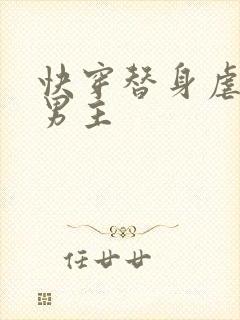 快穿替身虐
男主
任廿廿